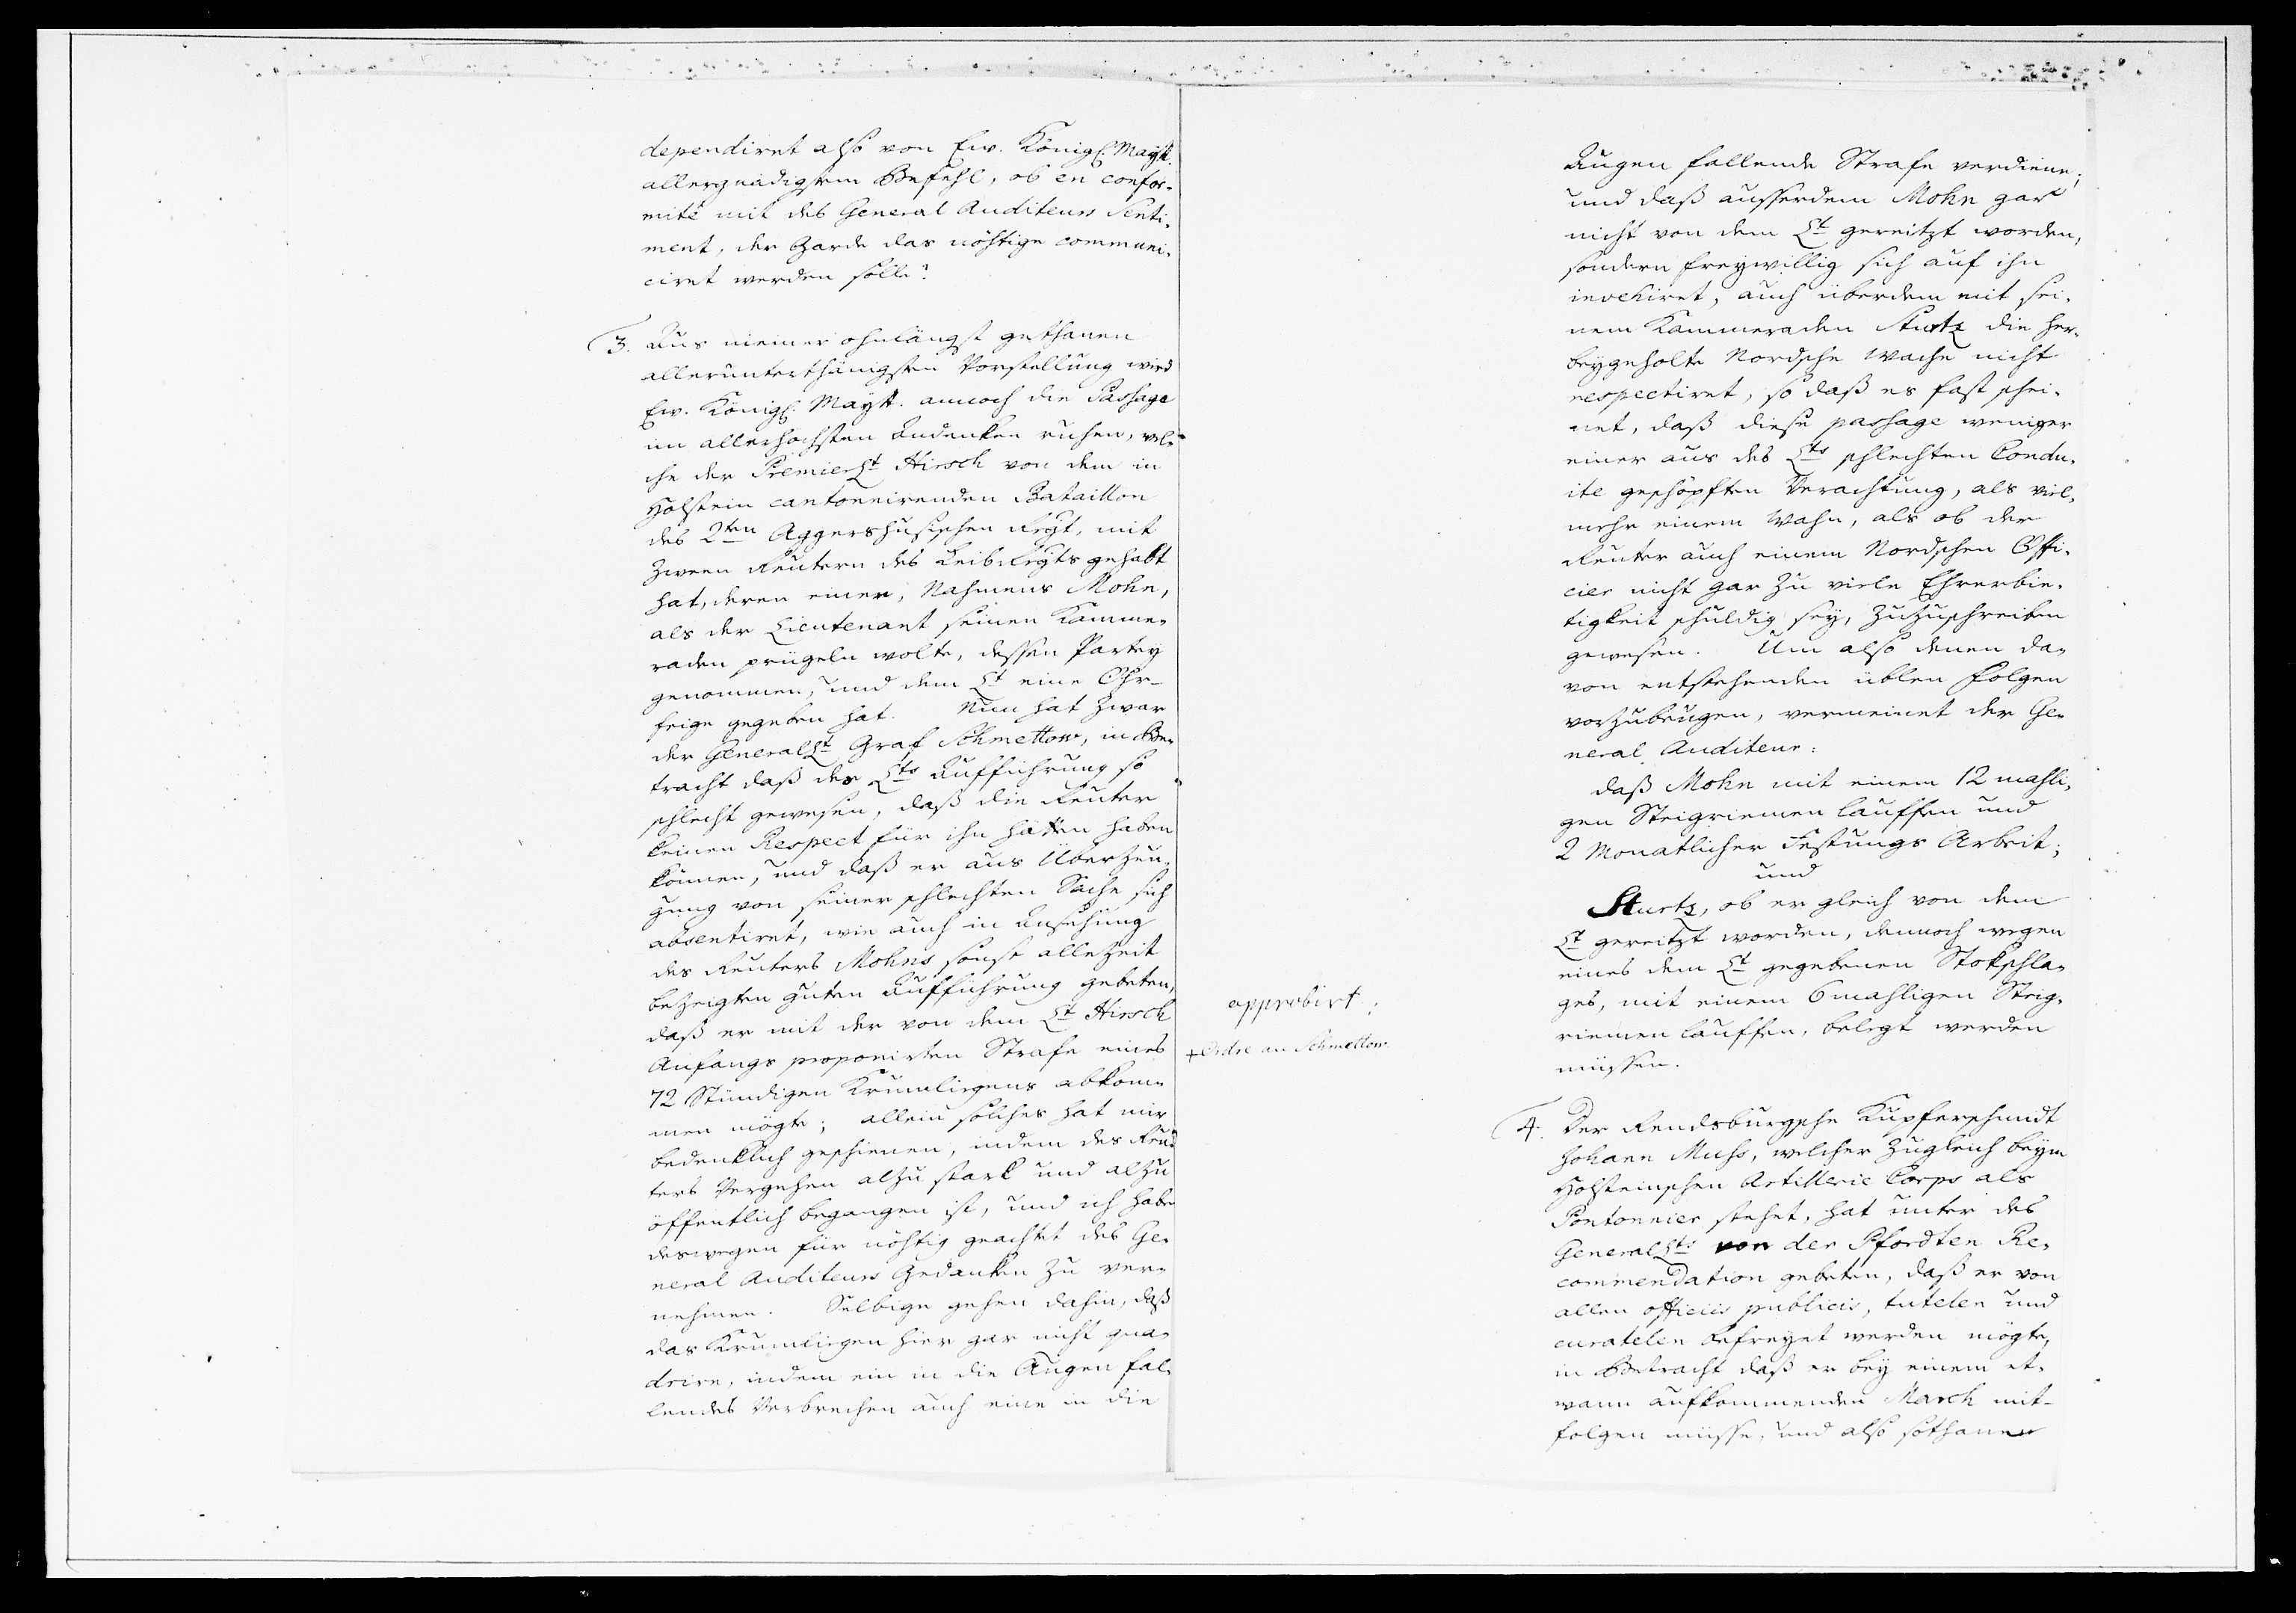 dependiret also von Ew. Königl. Maytt.
allergnädigstem Befehl, ob en confor-
mité mit des General Auditeurs Senti-
ment, der Garde das nöhtige communi-
ciret werden solle?
3. Aus meiner ohnlängst gethanen
allerunterthänigsten Vorstellung wird
Ew. Königl. Maytt. annoch die Passage
im allerhöchsten Andenken ruhen, wel-
che der Premier Lt Hirsch von dem in
Holstein cantonnirenden Bataillon
des 2ten Aggershusischen Regt. mit
zween Reutern des Leib Regts gehabt
hat, deren einer, Nahmens Mohn,
als der Lieutenant seinen Kamme-
raden prügeln wolte, dessen Partey
genommen, und dem Lt eine Ohr-
feige gegeben hat. Nun hat zwar
der General Lt Graf Schmettow, in Be-
tracht daß des Lts Aufführung so
schlecht gewesen, daß die Reuter
keinen Respect für ihn hätten haben
können, und daß er aus Überzeu-
gung von seiner schlechten Sache sich
absentiret, wie auch in Ansehung
des Reuters Mohns sonst allezeit
bezeigten guten Aufführung gebeten,
daß er mit der von dem Lt Hirsch
Anfangs proponirten Strafe eines
72 Stündigen Krumliegens abkom-
men mögte; allein solches hat mir
bedenklich geschienen, indem des Reu-
ters Vergehen alzu stark und alzu
öffentlich begangen ist, und ich habe
deswegen für nöhtig geachtet des Ge-
neral Auditeurs Gedanken zu ver-
nehmen. Selbige gehen dahin, daß
das Krumliegen hier gar nicht qua-
drire, indem ein in die Augen fal-
lendes Verbrechen auch eine in die
Augen fallende Strafe verdiene;
und daß ausserdem Mohn gar
nicht von dem Lt gereitzt worden,
sondern freywillig sich auf ihn
invehiret, auch überdem mit sei-
nem Kammeraden Sturtz die her-
beygeholte Nordsche Wache nicht
respectiret, so daß es fast schei-
net, daß diese passage weniger
einer aus des Lts schlechten Condu-
ite geschöpften Verachtung, als viel-
mehr einem Wahn, als ob der
Reuter auch einem Nordschen Offi-
cier nicht gar zu viele Ehrerbie-
tigkeit schuldig sey, zuzuschreiben
gewesen. Um also denen da-
von entstehenden üblen Folgen
vorzubeugen, vermeinet der Ge-
neral Auditeur:
daß Mohn mit einem 12 mahli-
gen Steigriemen lauffen und
2 Monatlicher Festungs Arbeit;
und
Sturtz, ob er gleich von dem
Lt gereitzt worden, dennoch wegen
eines dem Lt gegebenen Stokschla-
ges, mit einem 6 mahligen Steig-
riemen lauffen, belegt werden
müssen.
approbirt;
+ Ordre an Schmettow.
4. Der Rendsburgsche Kupferschmidt
Johann Muhs, welcher zugleich beym
Holsteinschen Artillerie Corps als
Pontonnier stehet, hat unter des
General Lts von der Pfordten Re-
commendation gebeten, daß er von
allen officiis publicis, tutelen und
curatelen befreyet werden mögte,
in Betracht daß er bey einem et-
wann aufkommenden March mit-
folgen müsse, und also sothanen